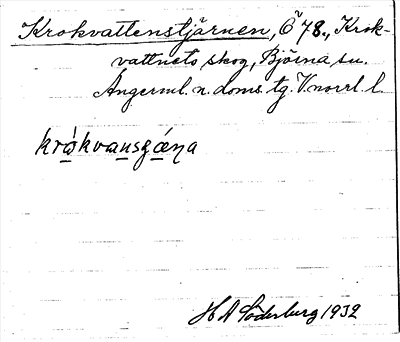 Krokvattenstjärnen, Ö 78., Krok-
vattnets skog, Björna sn.
Ångerml. n. doms. tg. V. norrl. l.
krokvansgæna
H A Söderburg 1932